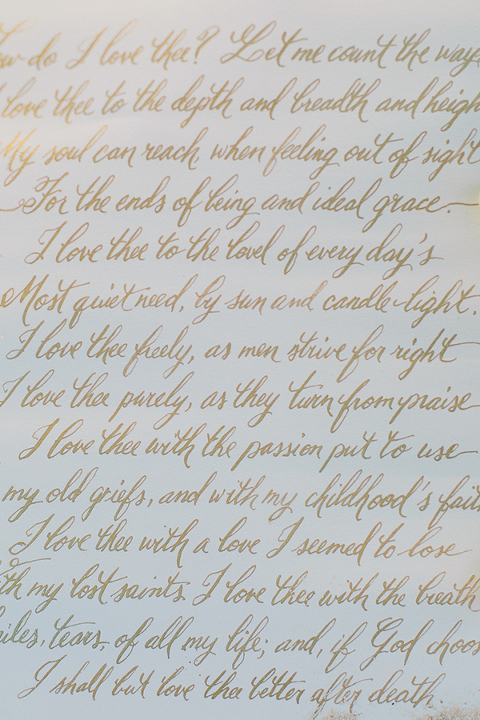 ow do I love thee? Let me count the ways
I love thee to the depth and breadth and heigh
My soul can reach when feeling out of sight
For the ends of being and ideal grace.
I love thee to the level of every day's
Most quiet need, by sun and candle-light.
I love thee freely, as men strive for right
I love thee purely, as they turn from praise
I love thee with the passion put to use
my old griefs, and with my childhood's fait
I love thee with a love I seemed to lose
th my lost saints. I love thee with the breath
iles, tears, of all my life; and, if God choos
I shall but love thee better after death.